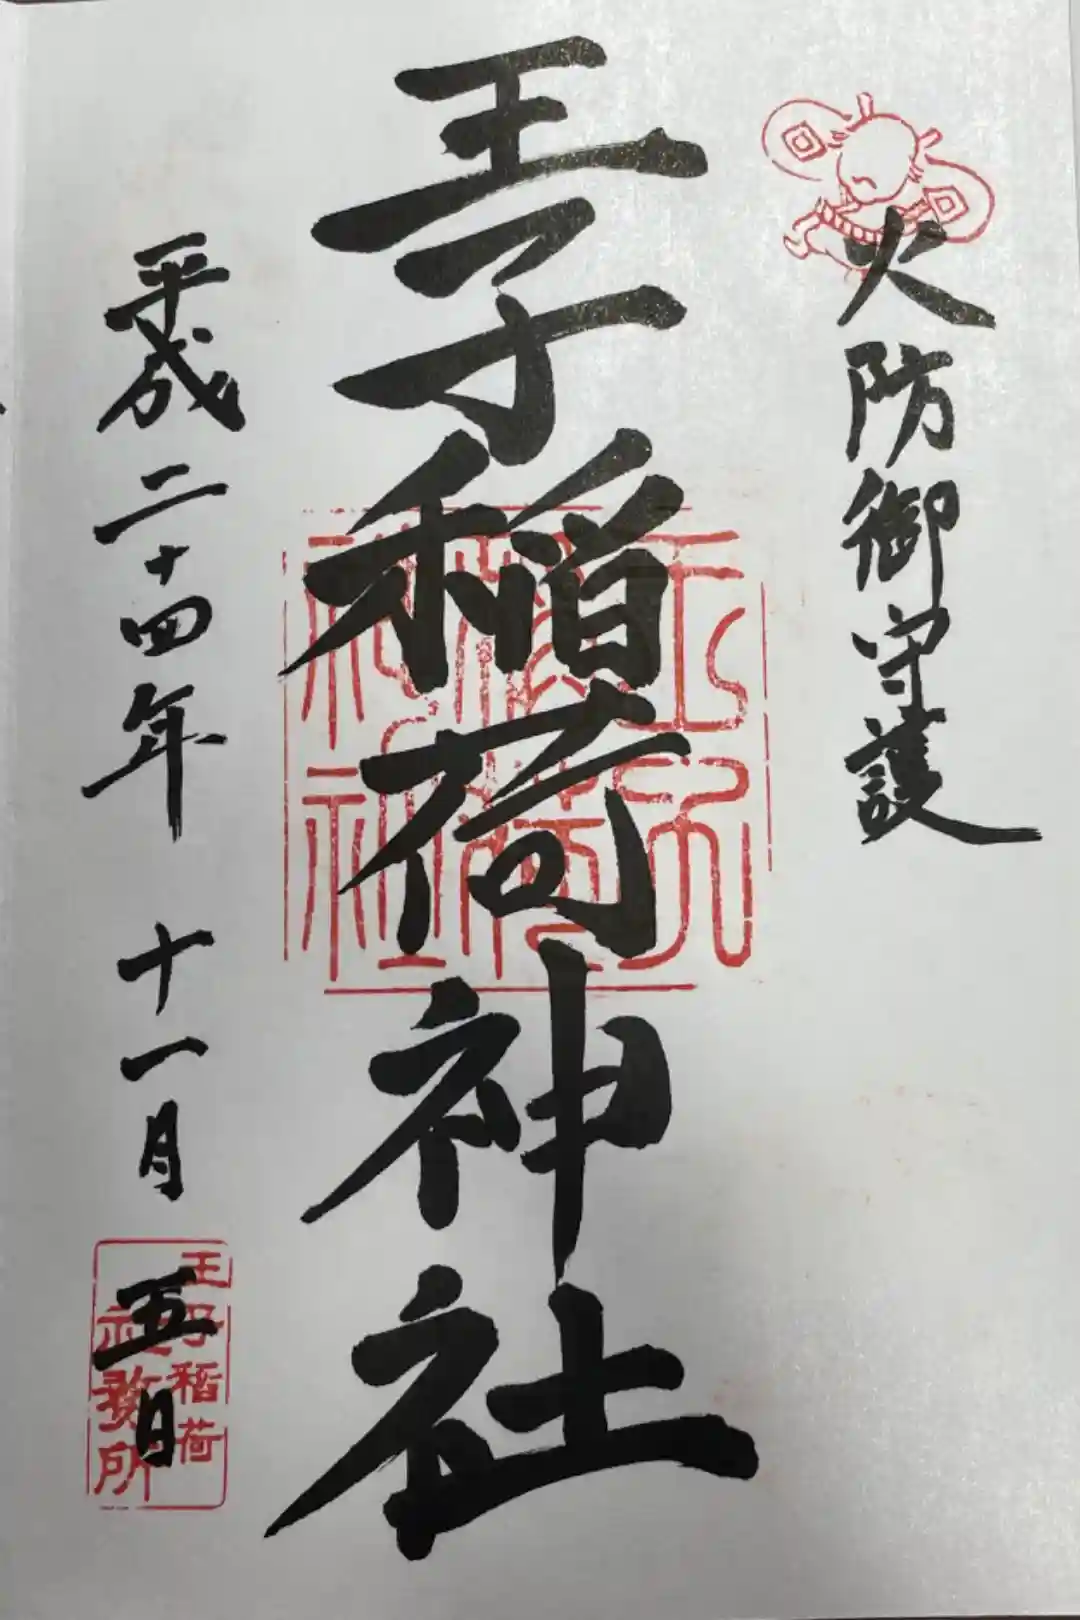 火防御守護
王子稲荷神社
平成二十四年 十一月 五日
王子稲荷神社
王子稲荷
社務所